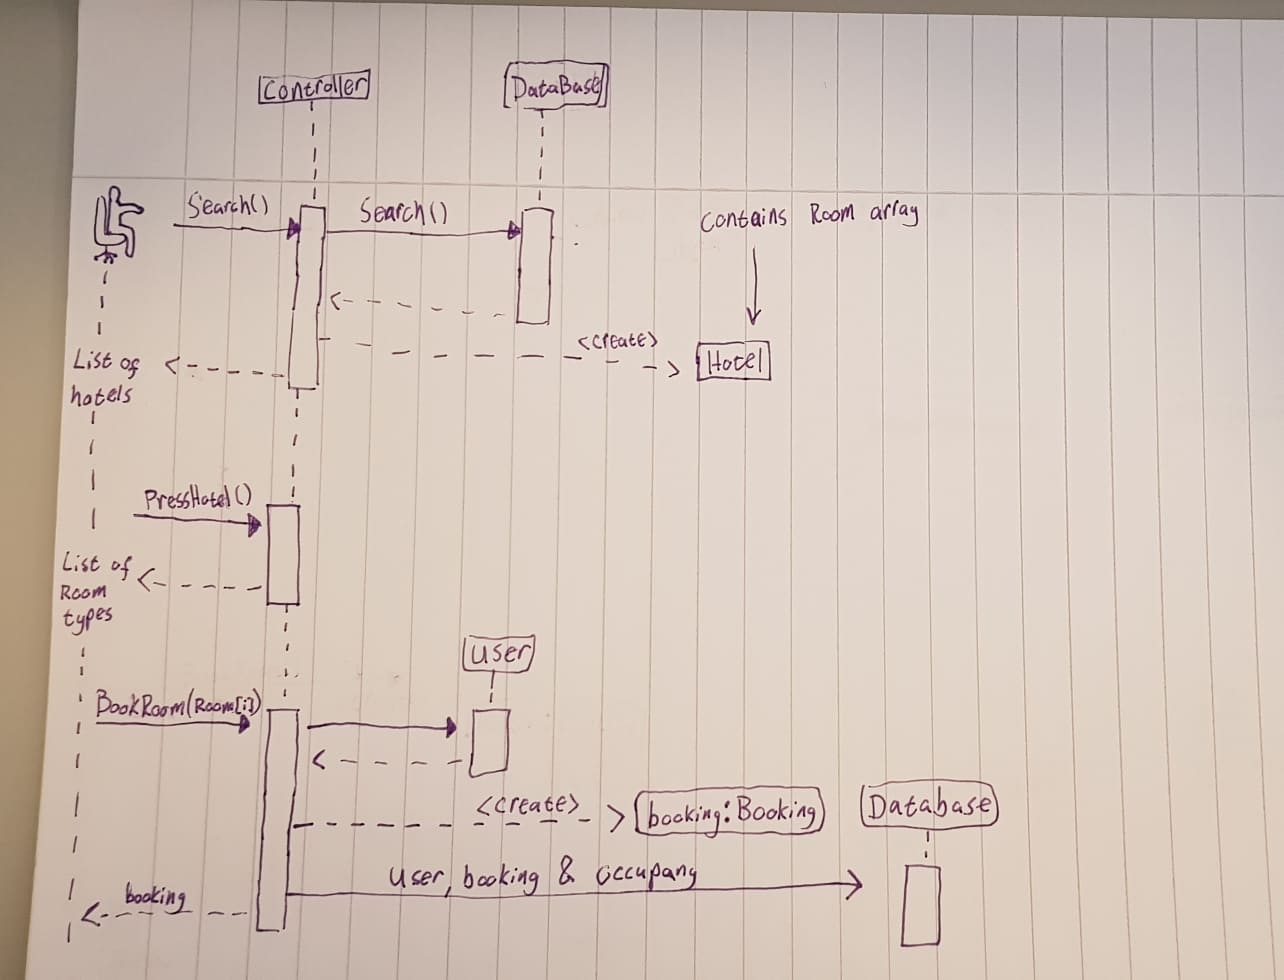 Controller
DataBase
Search()
Search()
Contains Room array
<create>
Hotel
List of
hotels
PressHotel()
List of
Room
types
User
BookRoom(Room[i])
<create>
booking:Booking
Database
User, booking & occupang
booking